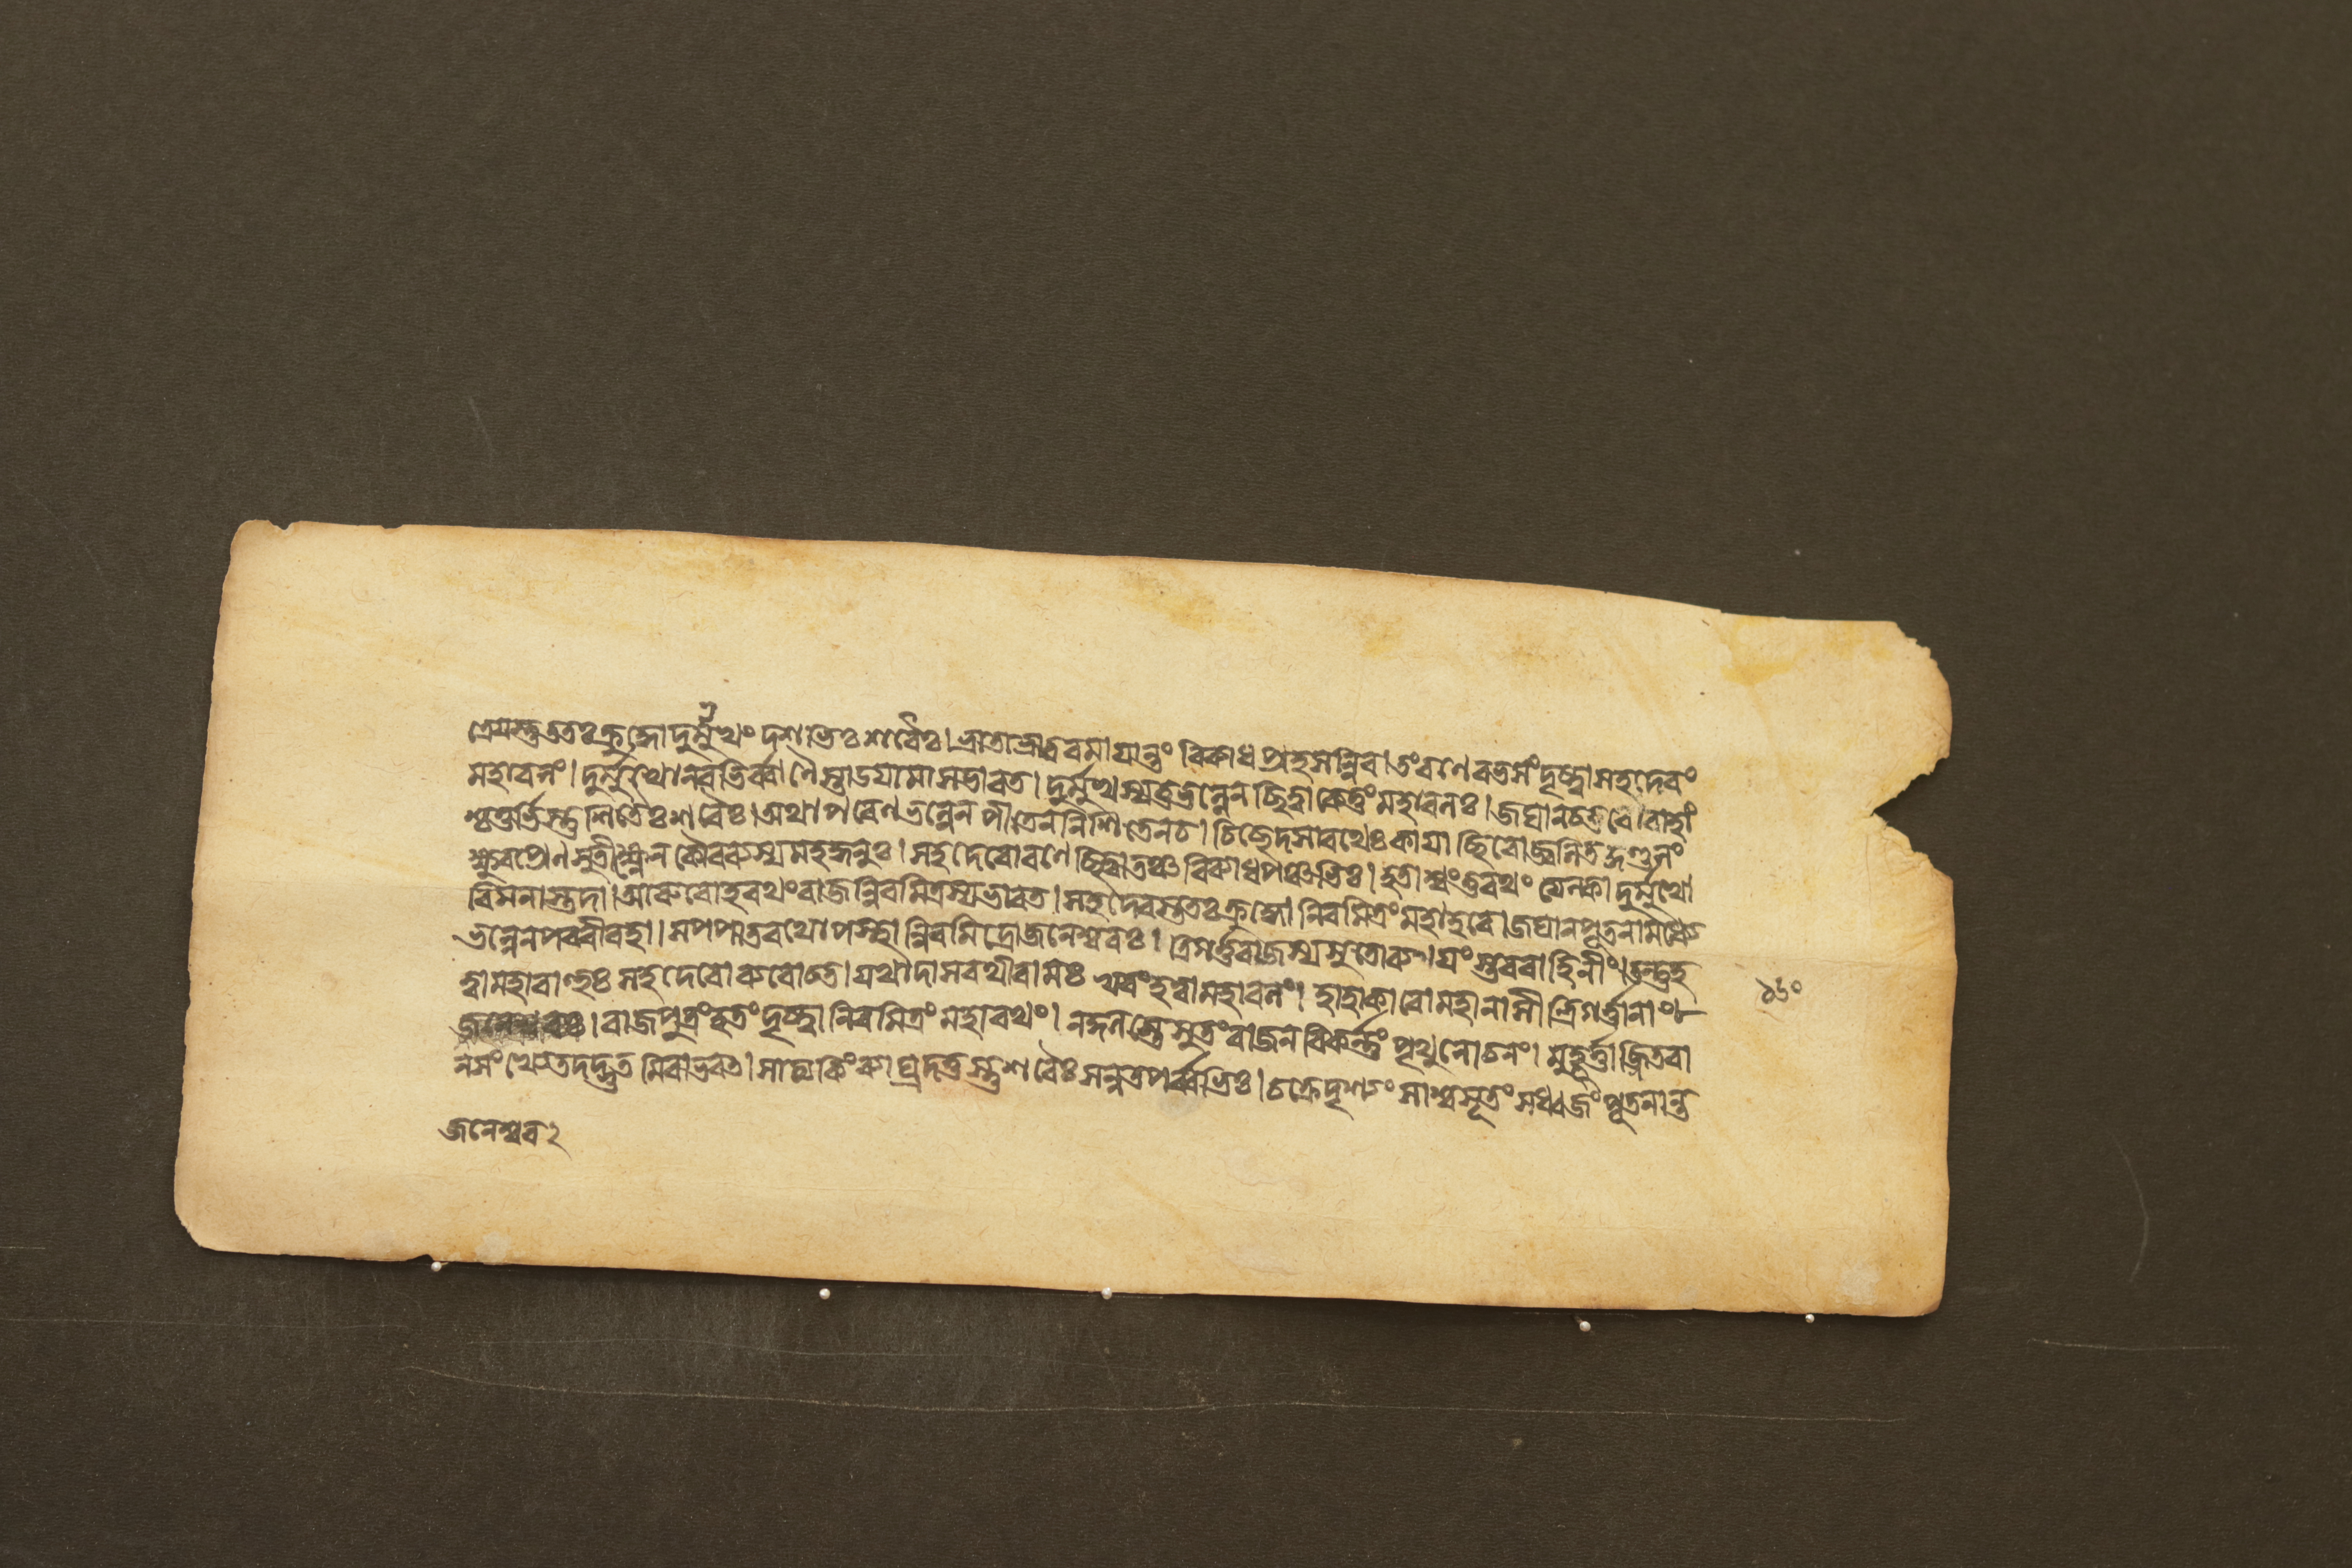 দ্রেয়স্তু ততঃ ক্রুদ্ধো দুর্মুখং দশভিঃ শরৈঃ। ভ্রাতা ভ্রাতরমায়ান্তং বিব্যাধ প্রহসন্নিব। তং রণে রভসং দৃষ্ট্বা সহদেবং
মহাবলং। দুর্মুখো নবভির্ব্বাণৈস্তাডয়ামাস ভারত। দুর্মুখস্য তু ভল্লেন ছিত্বা কেতুং মহাবলঃ। জঘান চতুরো বাহাং
শ্চতুর্ভিস্তু শিতৈঃ শরৈঃ। অথাপরেণ ভল্লেন পীতেন নিশিতেন চ। চিচ্ছেদ সারথেঃ কায়াচ্ছিরো জ্বলিতকুণ্ডলং
ক্ষুরপ্রেণ সুতীক্ষ্ণেন কৌরব্যস্য মহদ্ধনুঃ। সহদেবো রণে ছিত্বা তঞ্চ বিব্যাধ পঞ্চভিঃ। হতাশ্বং তু রথং ত্যক্ত্বা দুর্মুখো
বিমনাস্তদা। আরুরোহ রথং রাজন্নিরমিত্রস্য ভারত। সহদেবস্ততঃ ক্রুদ্ধো নিরমিত্রং মহাহবে। জঘান পৃতনামধ্যে
ভল্লেন পরবীরহা। স পপাত রথোপস্থান্নিরমিত্রো জনেশ্বরঃ। ত্রিগর্ত্তরাজস্য সুতো ব্যথয়ংস্তব বাহিনীং। তন্তু হ
ত্বা মহাবাহুঃ সহদেবো ব্যরোচত। যথা দাসরথী রামঃ খরং হত্বা মহাবলং। হাহাকারো মহানাসীত্ত্রিগর্ত্তানাং
জনেশ্বরঃ। রাজপুত্রং হতং দৃষ্ট্বা নিরমিত্রং মহারথং। নকুলস্তে সুতং রাজন বিকর্ন্নং পৃথুলোচনং। মুহূর্ত্তাজ্জিতবা
নসংখ্যেতদদ্ভুতমিবাভবত। সাত্যকিং ব্যাঘ্রদত্তস্তু শরৈঃ সন্নতপর্ব্বভিঃ। চক্রেদৃশ্যং সাশ্বসূতং সধ্বজং পৃতনান্ত
জনেশ্বর ২
১৬০